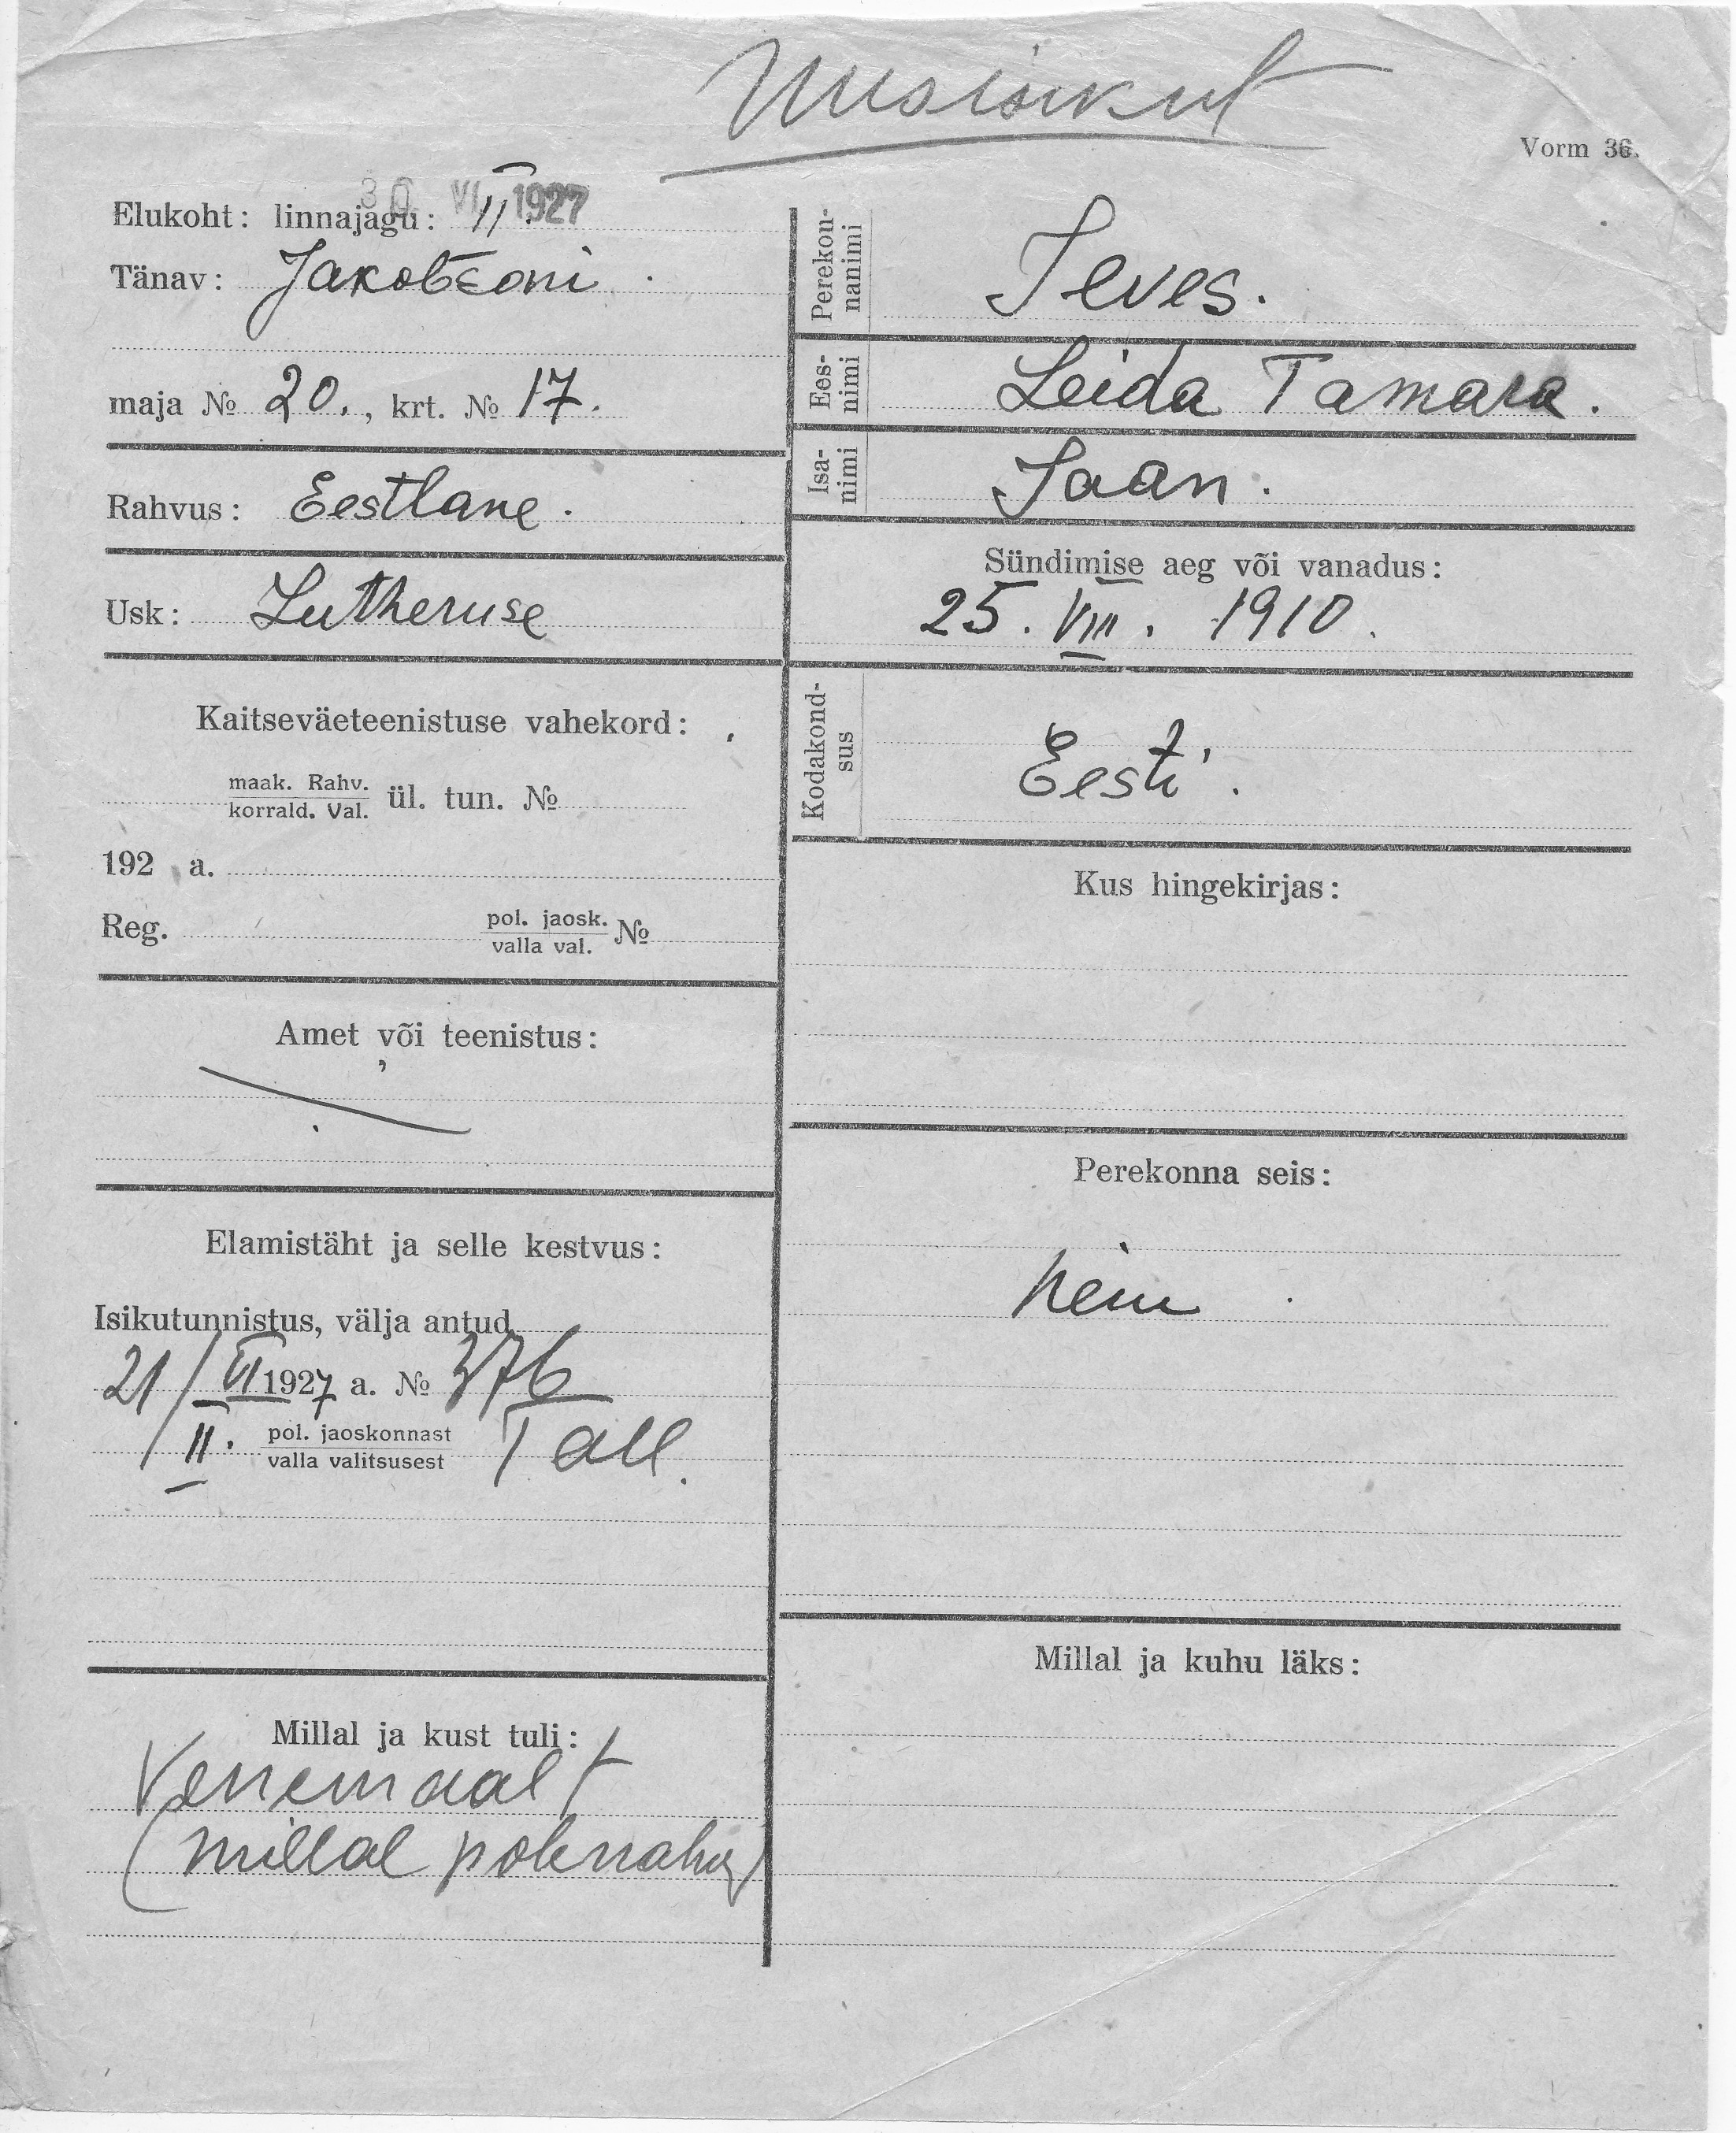 Uusisikut
Vorm 36.
30. VI. 1927
Elukoht: linnajagu: II.
Tänav: Jakobsoni.
maja № 20., krt. № 17.
Rahvus: Eestlane.
Usk: Lutheruse
Kaitseväeteenistuse vahekord:
maak. Rahv.
korrald. Val. ül. tun. №
192 a.
Reg. pol. jaosk.
valla val. №
Amet või teenistus:
Elamistäht ja selle kestvus:
Isikutunnistus, välja antud
21/VI 1927 a. № 376
II. pol. jaoskonnast
valla valitsusest Tall.
Millal ja kust tuli:
Venemaalt
(millal
Perekon-
nanimi
Ieves.
Ees-
nimi Leida Tamara.
Isa-
nimi Jaan.
Sündimise aeg või vanadus:
25. VIII. 1910.
Kodakond-
sus Eesti.
Kus hingekirjas:
Perekonna seis:
neiu
Millal ja kuhu läks: